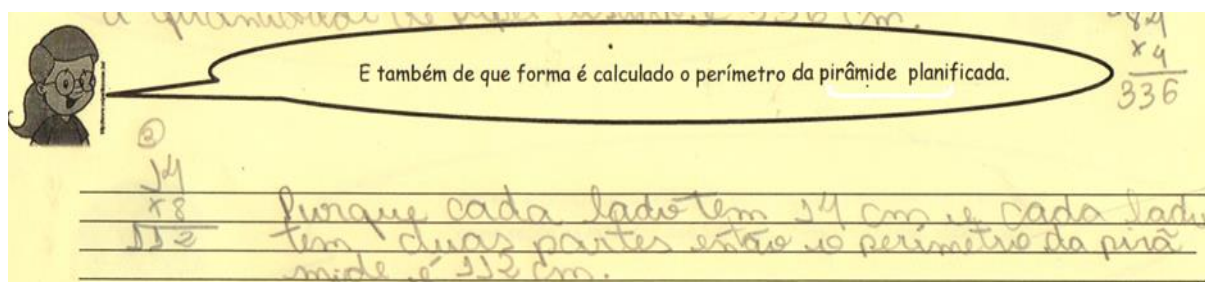 a quantidade de papel 336 cm.
E também de que forma é calculado o perímetro da pirâmide planificada.
84
x 4
336
3
14
x 8
112
Purque cada lado tem 14 cm e cada lado
tem duas partes então o perímetro da pirâ
mide é 112 cm.